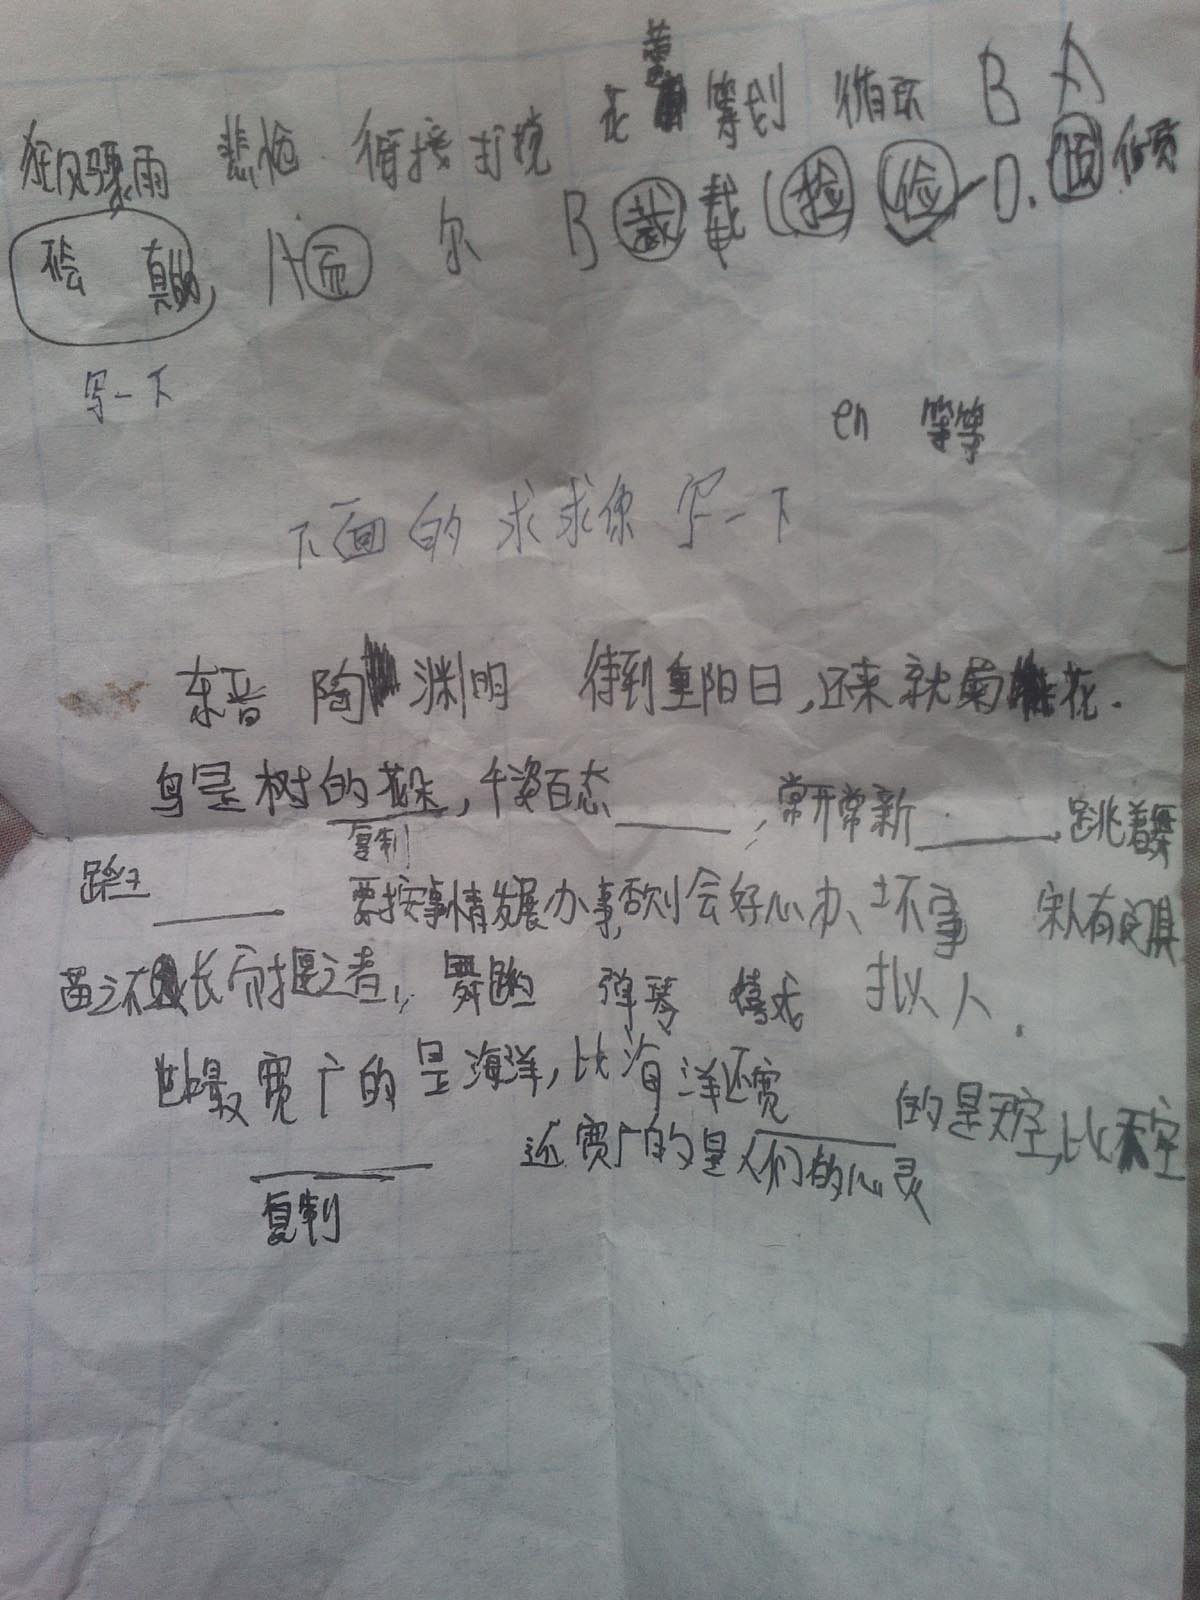 狂风骤雨 悲怆 衔接 打搅 花蕾 筹划 循环 B A
不会 真的 A 而 尔 B 裁 载 检 俭 D. 倾
写一下
en 等等
下面的求求你写一下
东晋 陶渊明 待到重阳日,还来就菊花.
鸟是树的花朵,千姿百态______,常开常新______跳着舞
______ 要按事情发展办事,否则会好心办坏事 宋人有闵其
苗之不长而揠之者, 舞蹈 弹琴 嬉戏 拟人.
世最宽广的是海洋,比海洋还宽______的是天空,比天空
______ 还宽广的是人们的心灵
复制